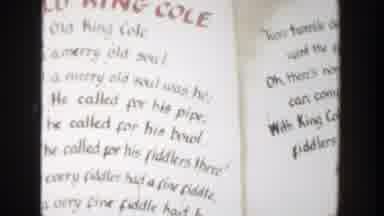 KING COLE
Old King Cole
a merry old soul
a merry old soul was he;
He called for his pipe,
he called for his bowl
he called for his fiddlers three!
every fiddler had a fine fiddle,
a very fine fiddle had h
went the
Oh, there's
can com
With King Co
fiddlers